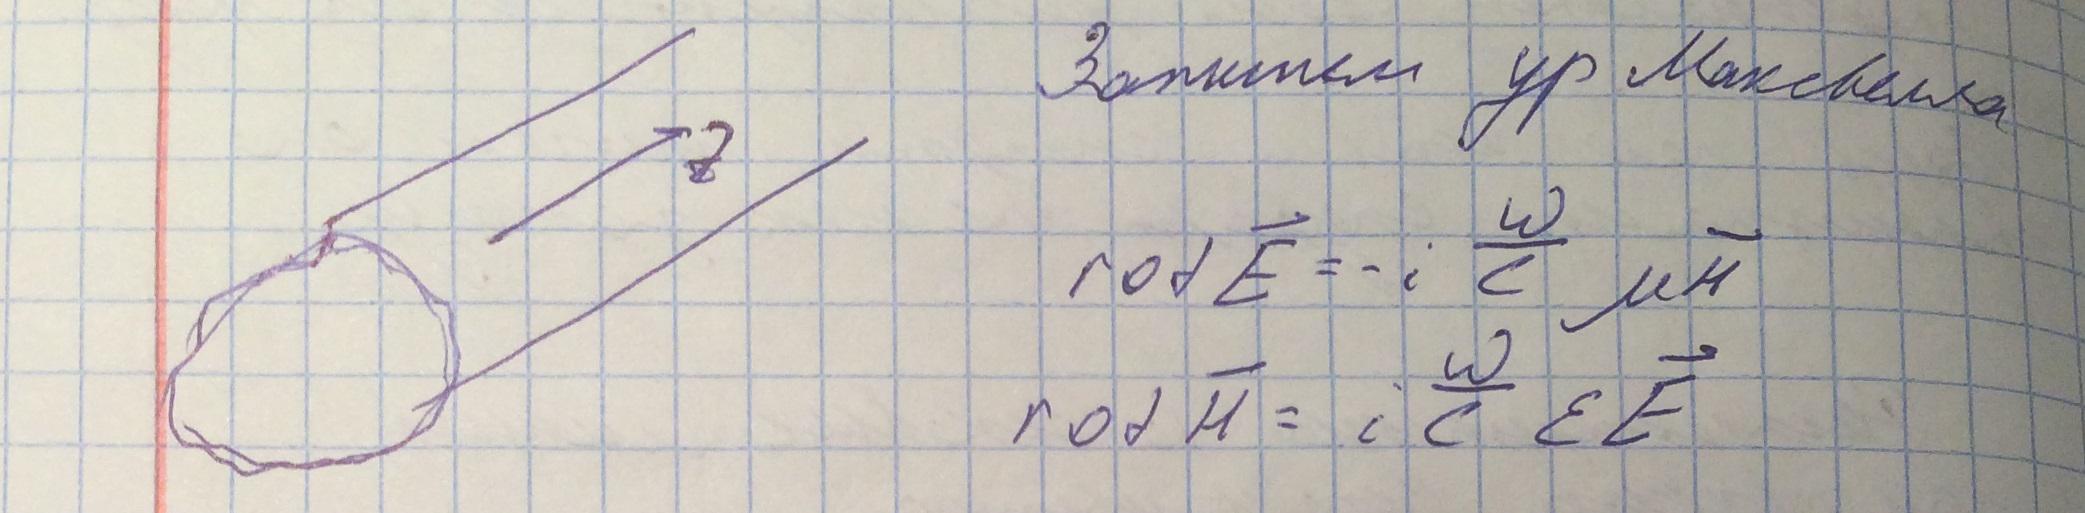 Запишем ур Максвелла
z
rot E⃗ = - i ω/c μH⃗
rot H⃗ = i ω/c εE⃗